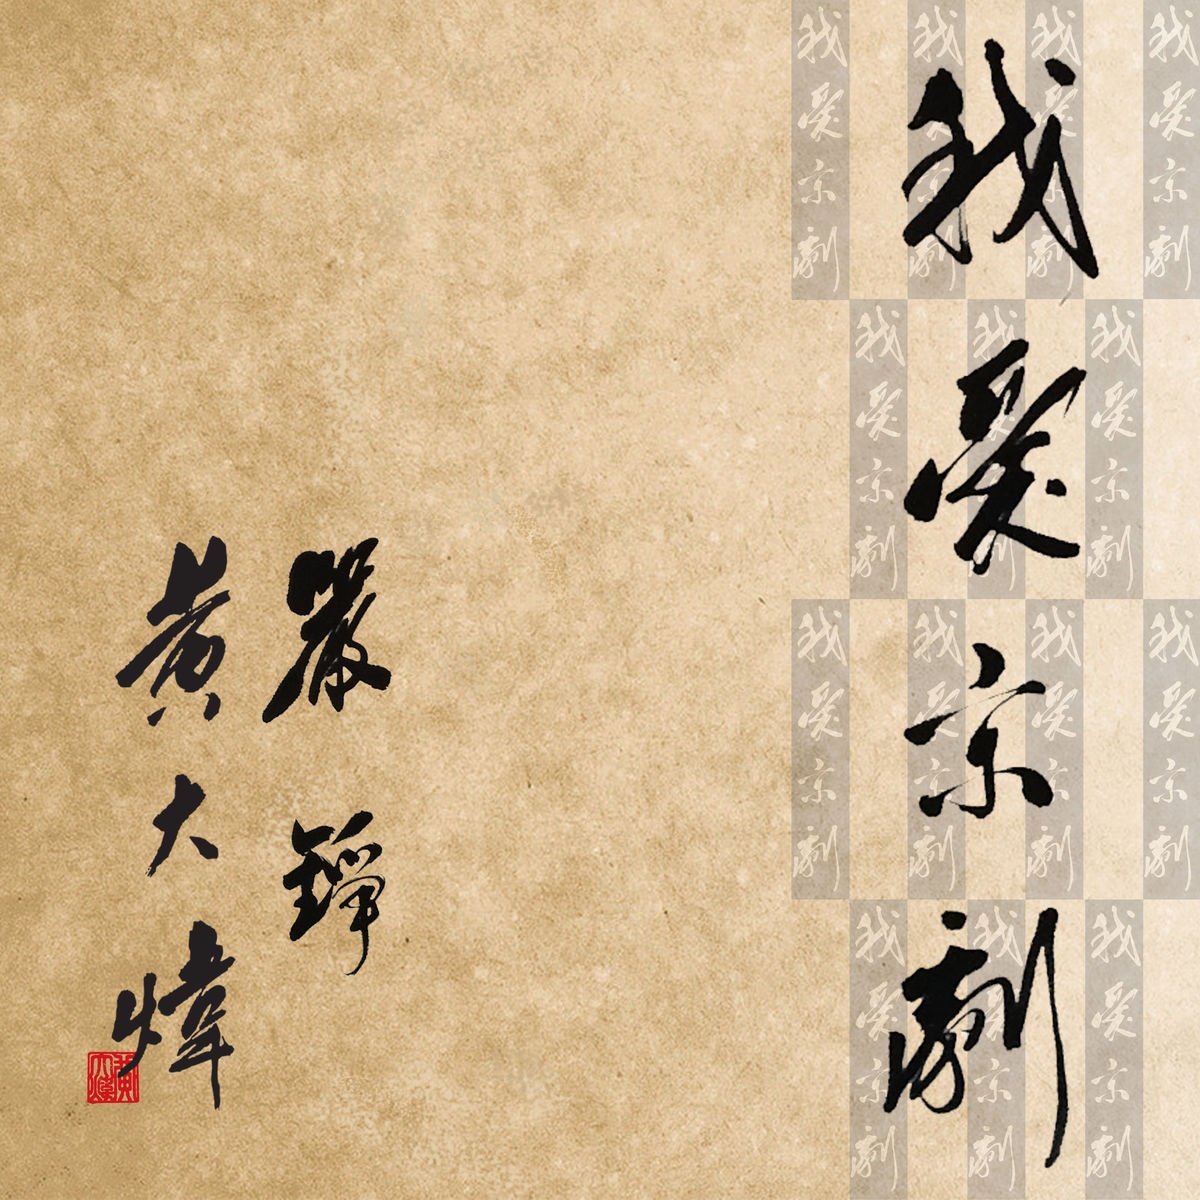 我愛京劇
嚴錚
黃大煒
我愛京劇
我愛京劇
我愛京劇
我愛京劇
我愛京劇
我愛京劇
我愛京劇
我愛京劇
我愛京劇
我愛京劇
我愛京劇
我愛京劇
我愛京劇
我愛京劇